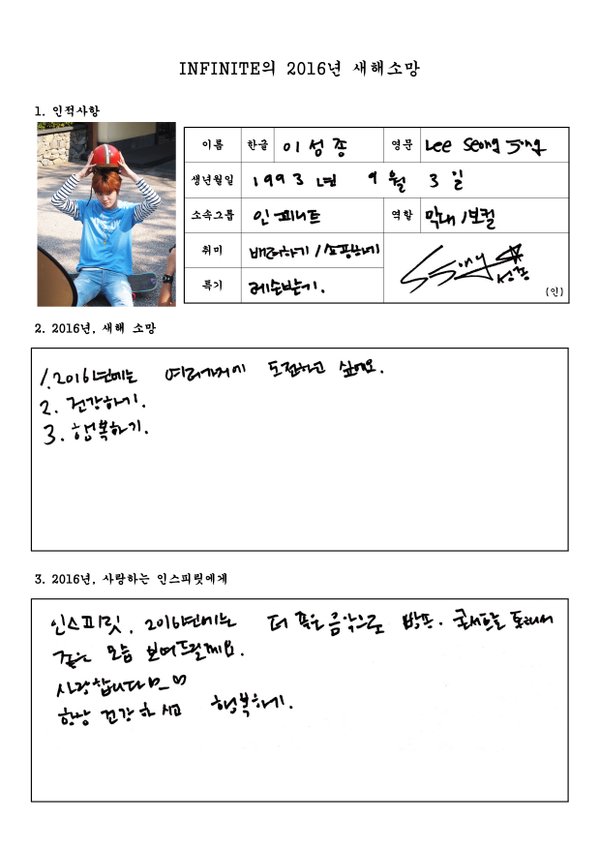 INFINITE의 2016년 새해소망
1. 인적사항
이름 한글 이성종 영문 Lee Seong Jong
생년월일 1993년 9월 3일
소속그룹 인피니트 역할 막내/보컬
취미 배려하기/쇼핑하기
특기 레슨받기.
SJong 성종
(인)
2. 2016년, 새해 소망
1. 2016년에는 여러가지에 도전하고 싶어요.
2. 건강하기.
3. 행복하기.
3. 2016년, 사랑하는 인스피릿에게
인스피릿, 2016년에는 더 좋은 음악으로 방송. 콘서트를 통해서
좋은 모습 보여드릴께요.
사랑합니다
항상 건강하시고 행복하기.